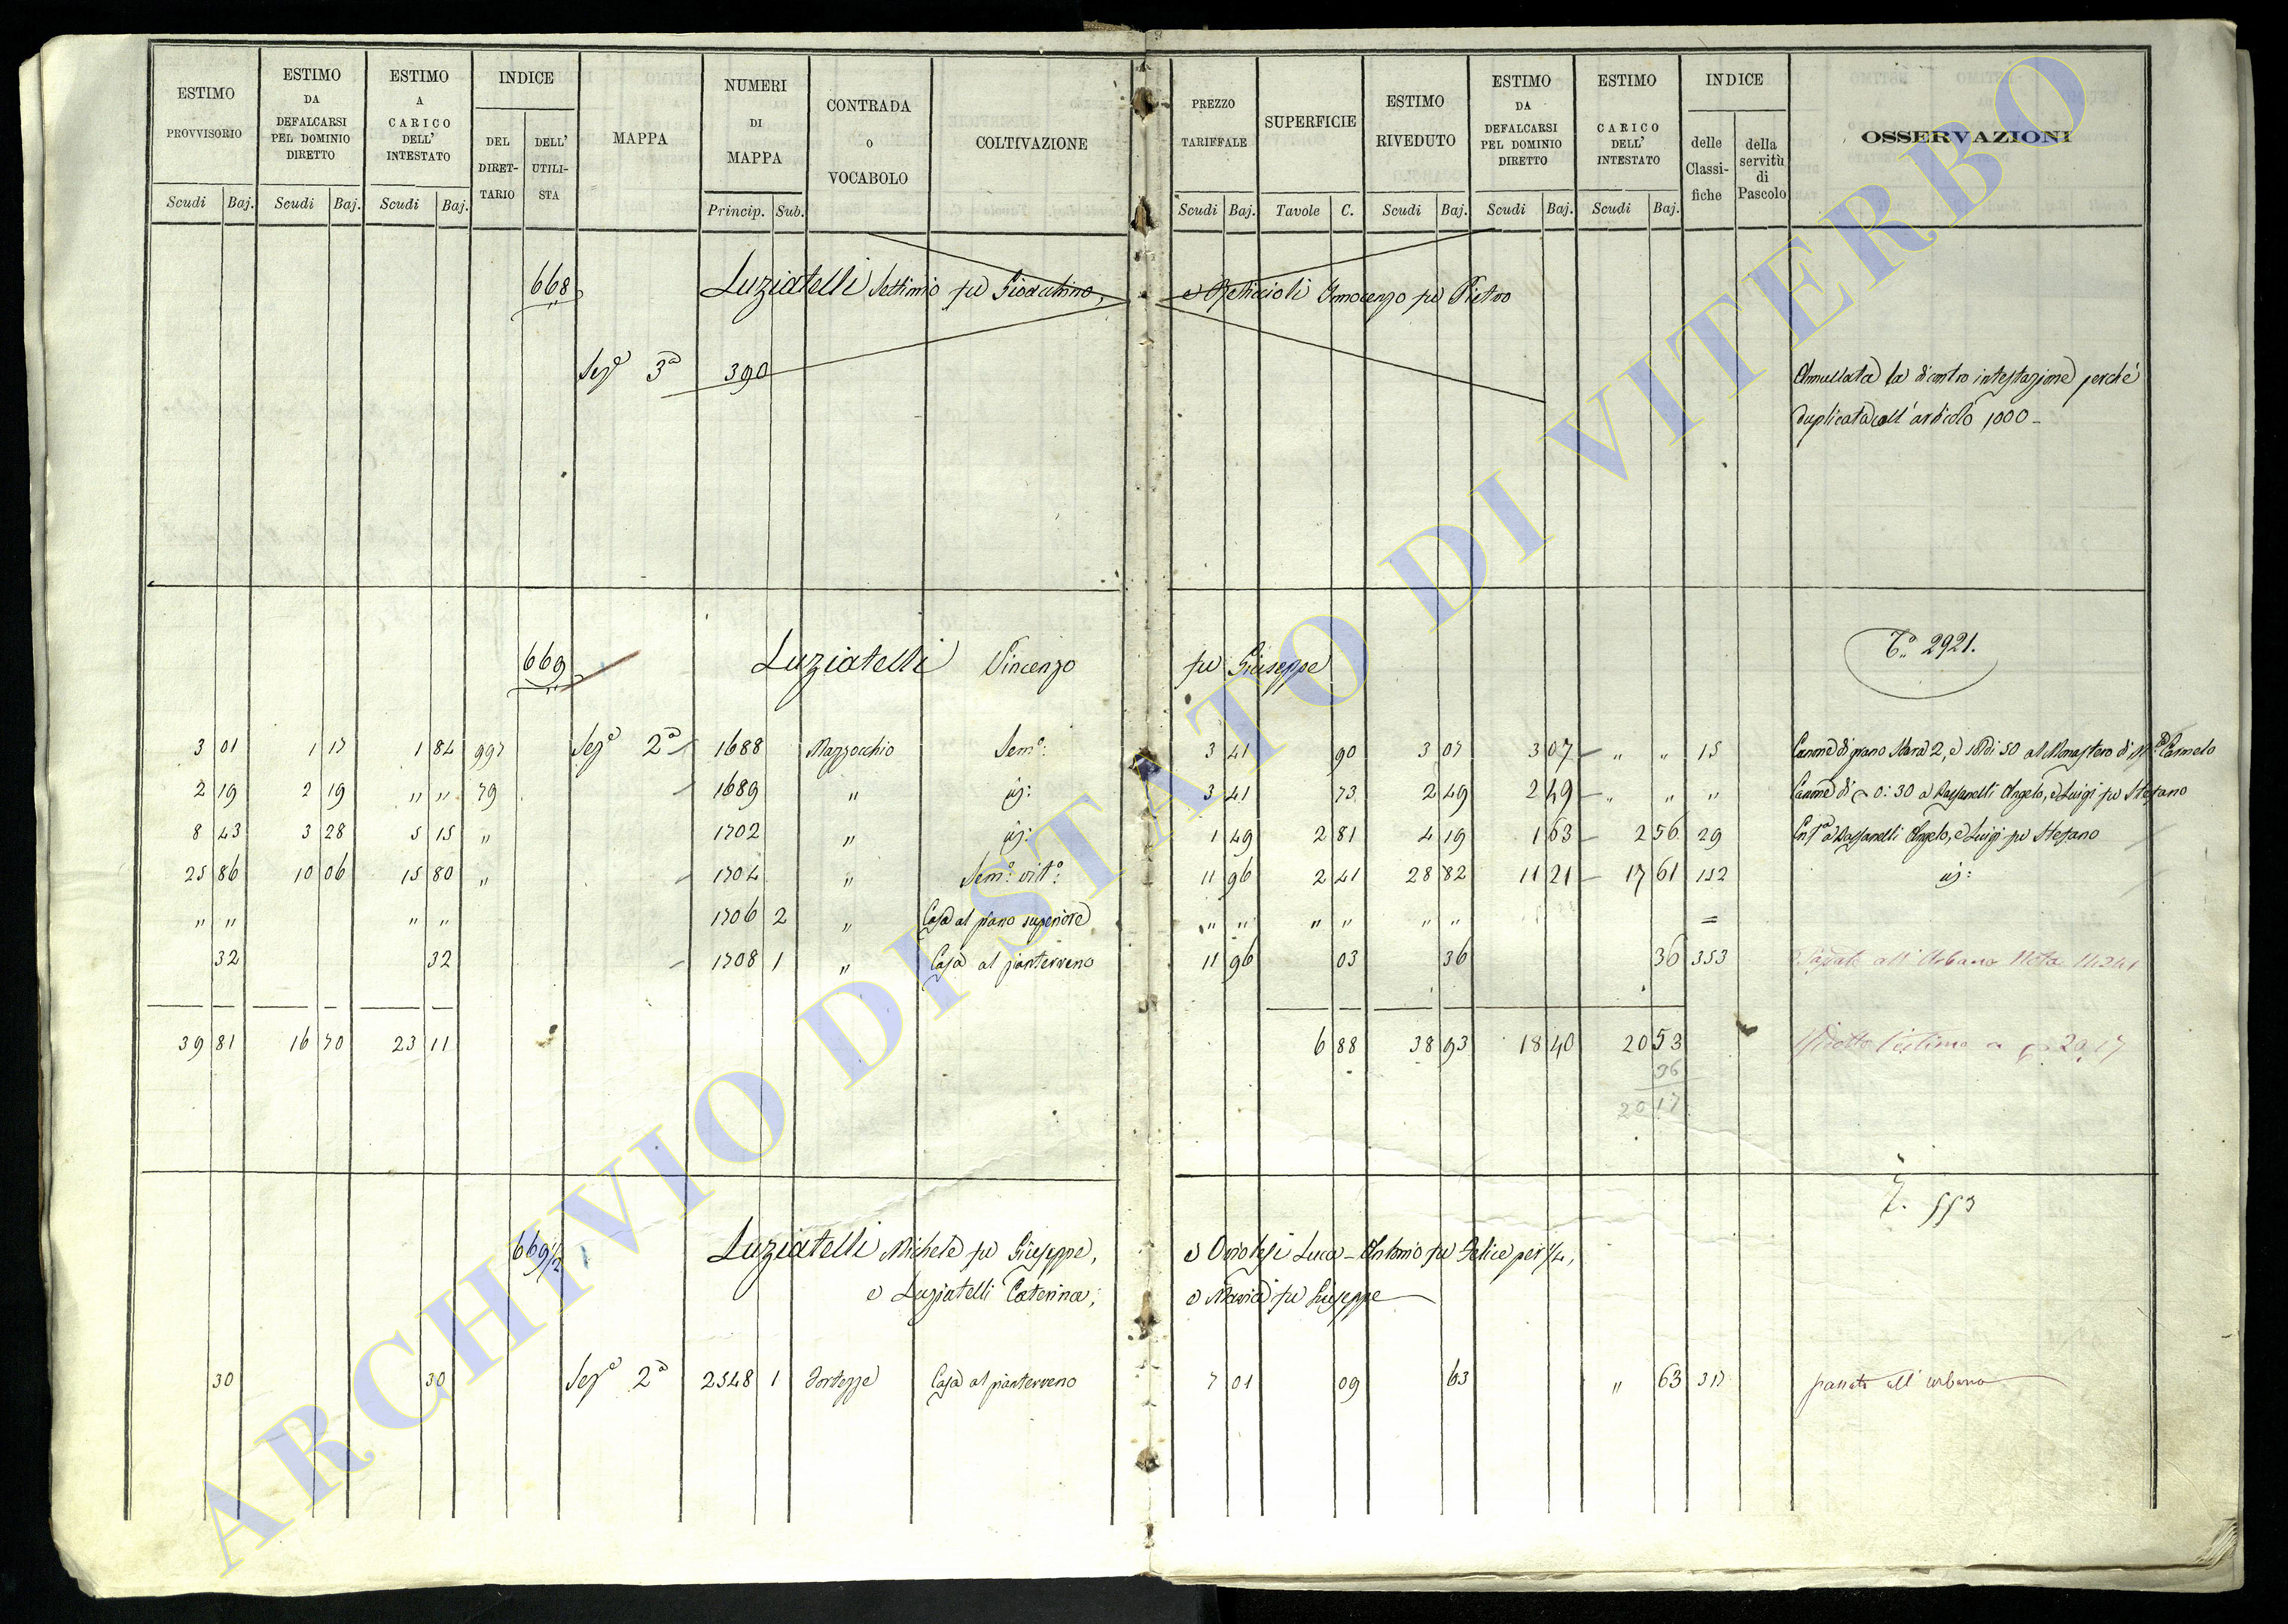 ESTIMO PROVVISORIO | ESTIMO DA DEFALCARSI PEL DOMINIO DIRETTO | ESTIMO A CARICO DELL' INTESTATO | INDICE DEL DIRETTARIO | DELL' UTILISTA | MAPPA | NUMERI DI MAPPA | CONTRADA O VOCABOLO | COLTIVAZIONE | PREZZO TARIFFALE | SUPERFICIE | ESTIMO RIVEDUTO | ESTIMO DA DEFALCARSI PEL DOMINIO DIRETTO | ESTIMO CARICO DELL' INTESTATO | INDICE delle Classifiche | della servitù di Pascolo | OSSERVAZIONI
Scudi Baj. Scudi Baj. Scudi Baj. Princip. Sub. Scudi Baj. Tavole C. Scudi Baj. Scudi Baj. Scudi Baj.
668 Luziatelli Settimio fu Gioacchino, e Innocenzo fu Pietro
Seze 3a 390 Annullata la dicontro intestazione perché
duplicata coll' articolo 1000 -
669 Luziatelli Vincenzo fu Giuseppe To 2921.
3 01 1 17 1 84 997 Seze 2a 1688 Mazzocchio Semo: 3 41 90 3 07 3 07 " " 15 Canone di grano 2, e soldi 50 al Monastero di Carmelo
2 19 2 19 " " 79 1689 " id: 3 41 73 2 49 2 49 " " " Canone di 0:30 a Angelo, e Luigi fu Stefano
8 43 3 28 5 15 " 1702 " id: 1 49 2 81 4 19 1 63 2 56 29 Angelo, e Luigi fu Stefano
25 86 10 06 15 80 " 1704 " Semo: vito: 11 96 2 41 28 82 11 21 17 61 152 id:
" " " " 1706 2 " Casa al piano superiore " " " " " " =
32 32 1708 1 " Casa al pianterreno 11 96 03 36 36 353 all' Urbano
39 81 16 70 23 11 6 88 38 93 18 40 20 53 l'estimo a 20.17
36
20 17
T. 553
669 1/2 Luziatelli Michele fu Giuseppe, e Luca-Antonio fu Felice per 1/4,
e Luziatelli Caterina, e Maria fu Giuseppe
30 30 Seze 2a 2548 1 Fortezze Casa al pianterreno 7 01 09 63 " 63 317 passato all' urbano
ARCHIVIO DI STATO DI VITERBO